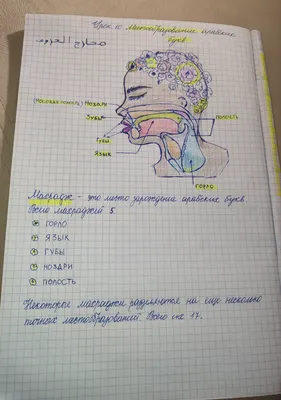 Урок 10 Местообразование арабских
букв
مخارج الحروف
(носовая полость) Ноздри
Зубы
Губы
Язык
полость
горло
Махрадж - это место зарождения арабских букв
Всего махраджей 5
горло
язык
губы
ноздри
полость
Некоторое махраджи разделяются на еще несколько
точных местобразований. Всего их 17.